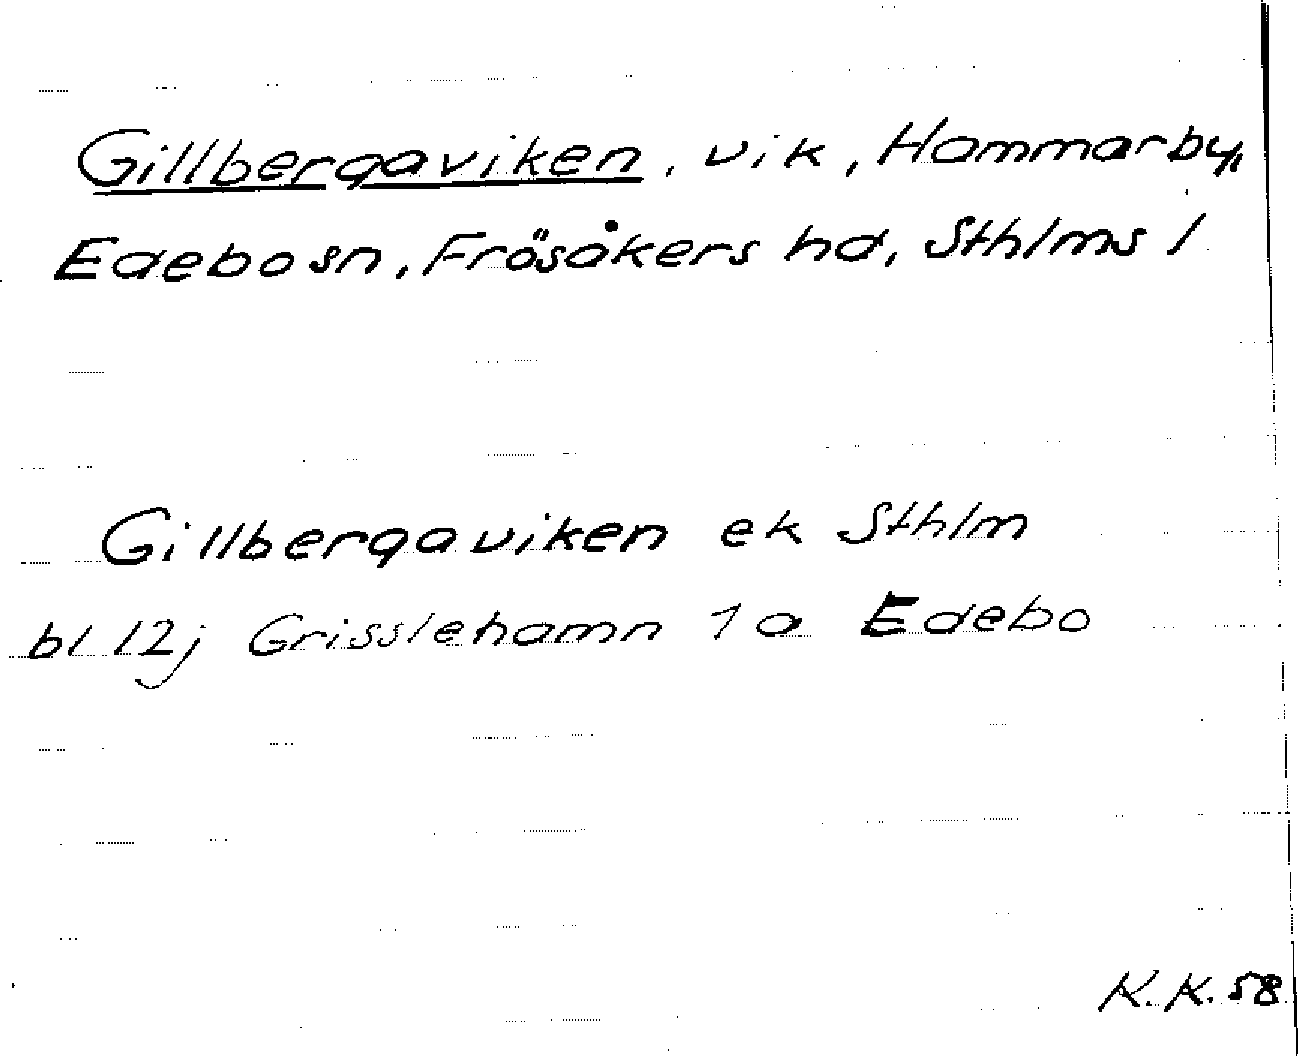 Gillbergaviken, vik, Hammarby,
Edebo sn, Frösåkers hd, Sthlms l
Gillbergaviken ek Sthlm
bl 12j Grisslehamn 1a Edebo
K.K. 58